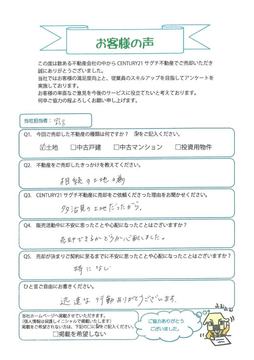 お客様の声
この度は数ある不動産会社の中からCENTURY21 サグチ不動産でご売却いただき
誠にありがとうございました。
当社ではお客様の満足度向上と、従業員のスキルアップを目指してアンケートを
実施しております。
お客様の率直なご意見を今後のサービスに役立てたいと考えております。
何卒ご協力の程よろしくお願い申し上げます。
当社担当者:
Q1. 今回ご売却した不動産の種類は何ですか? ✓をご記入ください。
☑土地 □中古戸建 □中古マンション □投資用物件
Q2. 不動産をご売却したきっかけを教えてください。
相続の土地の為
Q3. CENTURY21 サグチ不動産でご売却をご依頼くださった理由をお聞かせください。
多治見の土地だったから。
Q4. 販売活動中に不安に思ったことや心配になったことはございますか?
売却できるかどうか心配しました。
Q5. 売却が決まりご契約に至るまでに不安に思ったことや心配になったことはございますか?
特になし
ひと言ご自由にお書きください。
迅速な行動ありがとうございます。
当社ホームページへ掲載すます
(個人情報は保護しイニシャルで掲載いたします)
□掲載を希望しない
ご協力ありがとう
ございました。